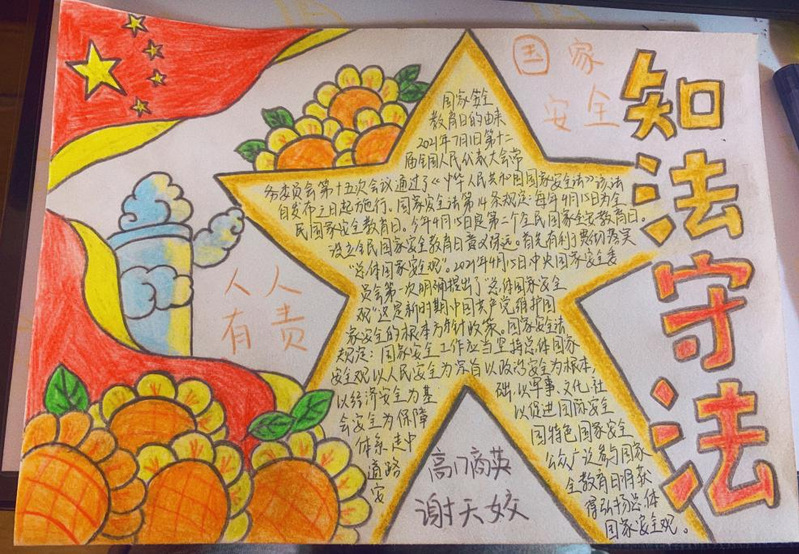 知法守法
国家
安全
人人
有责
国家安全
教育日的由来
2021年7月1日第十二
届全国人民代表大会常
务委员会第十五次会议通过了《中华人民共和国国家安全法》该法
自发布之日起施行、国家安全法第14条规定:每年4月15日为全
民国家安全教育日。今年4月15日是第二个全民国家安全教育日。
设立全民国家安全教育日意义深远。首先有利于贯彻落实
"总体国家安全观"。2021年4月15日中央国家安全委
员会第一次明确提出了"总体国家安全
观"这是新时期中国共产党维护国
家安全的根本方针政策、国家安全法
规定:国家安全工作应当坚持总体国家
安全观以人民安全为宗旨以政治安全为根本,
以经济安全为基 础,以军事、文化、社
会安全为保障 以促进国际安全
体系走中 国特色国家安全
道路 公众广泛参与国家
安 全教育日将获
得弘扬总体
国家安全观。
高门商英
谢天姣